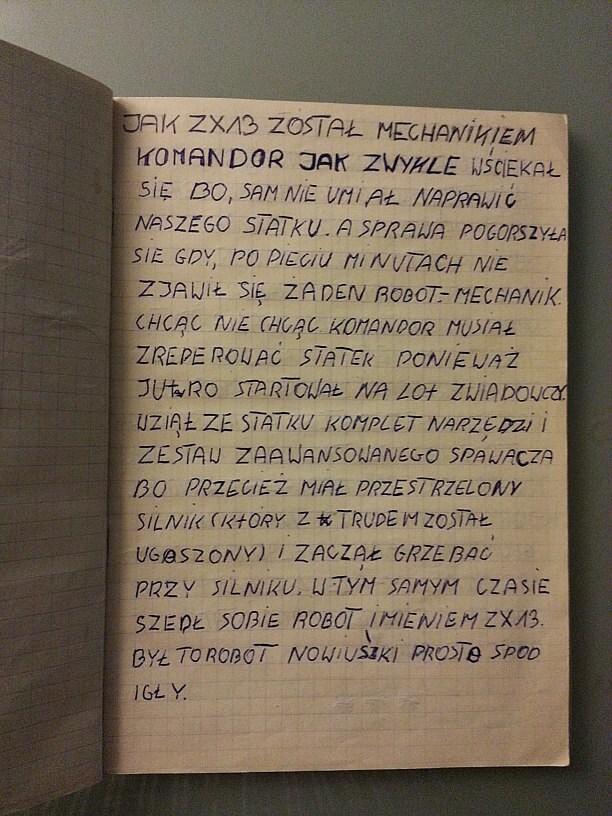 JAK ZX13 ZOSTAŁ MECHANIKIEM
KOMANDOR JAK ZWYKLE WŚCIEKAŁ
SIĘ BO, SAM NIE UMIAŁ NAPRAWIĆ
NASZEGO STATKU. A SPRAWA POGORSZYŁA
SIE GDY, PO PIĘCIU MINUTACH NIE
ZJAWIŁ SIĘ ZADEN ROBOT-MECHANIK.
CHCĄC NIE CHCĄC KOMANDOR MUSIAŁ
ZREPEROWAĆ STATEK PONIEWAŻ
JUTRO STARTOWAŁ NA LOT ZWIADOWCZY.
WZIĄŁ ZE STATKU KOMPLET NARZĘDZI I
ZESTAW ZAAWANSOWANEGO SPAWACZA
BO PRZECIEŻ MIAŁ PRZESTRZELONY
SILNIK (KTÓRY Z TRUDEM ZOSTAŁ
UGASZONY) I ZACZĄŁ GRZEBAĆ
PRZY SILNIKU. W TYM SAMYM CZASIE
SZEDŁ SOBIE ROBOT IMIENIEM ZX13.
BYŁ TO ROBOT NOWIUSZKI PROSTO SPOD
IGŁY.